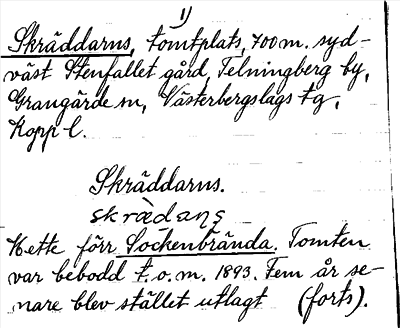 1)
Skräddarns, tomtplats, 700 m. syd-
väst Stenfallet gård, Telningberg by,
Grangärde sn, Västerbergslags tg,
Kopp l.
Skräddarns.
skrædans
Hette förr Sockenbrända. Tomten
var bebodd t.o.m. 1893. Fem år se-
nare blev stället utlagt (forts).